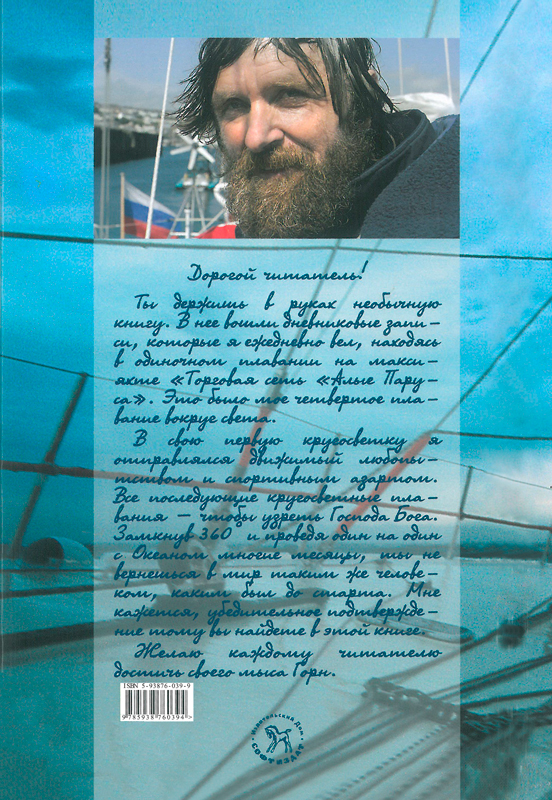 Дорогой читатель!
Ты держишь в руках необычную
книгу. В нее вошли дневниковые запи-
си, которые я ежедневно вел, находясь
в одиночном плавании на макси-
яхте «Торговая сеть «Алые Пару-
са». Это было мое четвертое пла-
вание вокруг света.
В свою первую кругосветку я
отправлялся движимый любопы-
тством и спортивным азартом.
Все последующие кругосветные пла-
вания — чтобы узреть Господа Бога.
Замкнув 360 и проведя один на один
с Океаном многие месяцы, ты не
вернешься в мир таким же челове-
ком, каким был до старта. Мне
кажется, убедительное подтвержде-
ние тому вы найдете в этой книге.
Желаю каждому читателю
достичь своего мыса Горн.
ISBN 5-93876-039-9
9 785938 760394 >
• Издательский Дом •
СОФТИЗДАТ